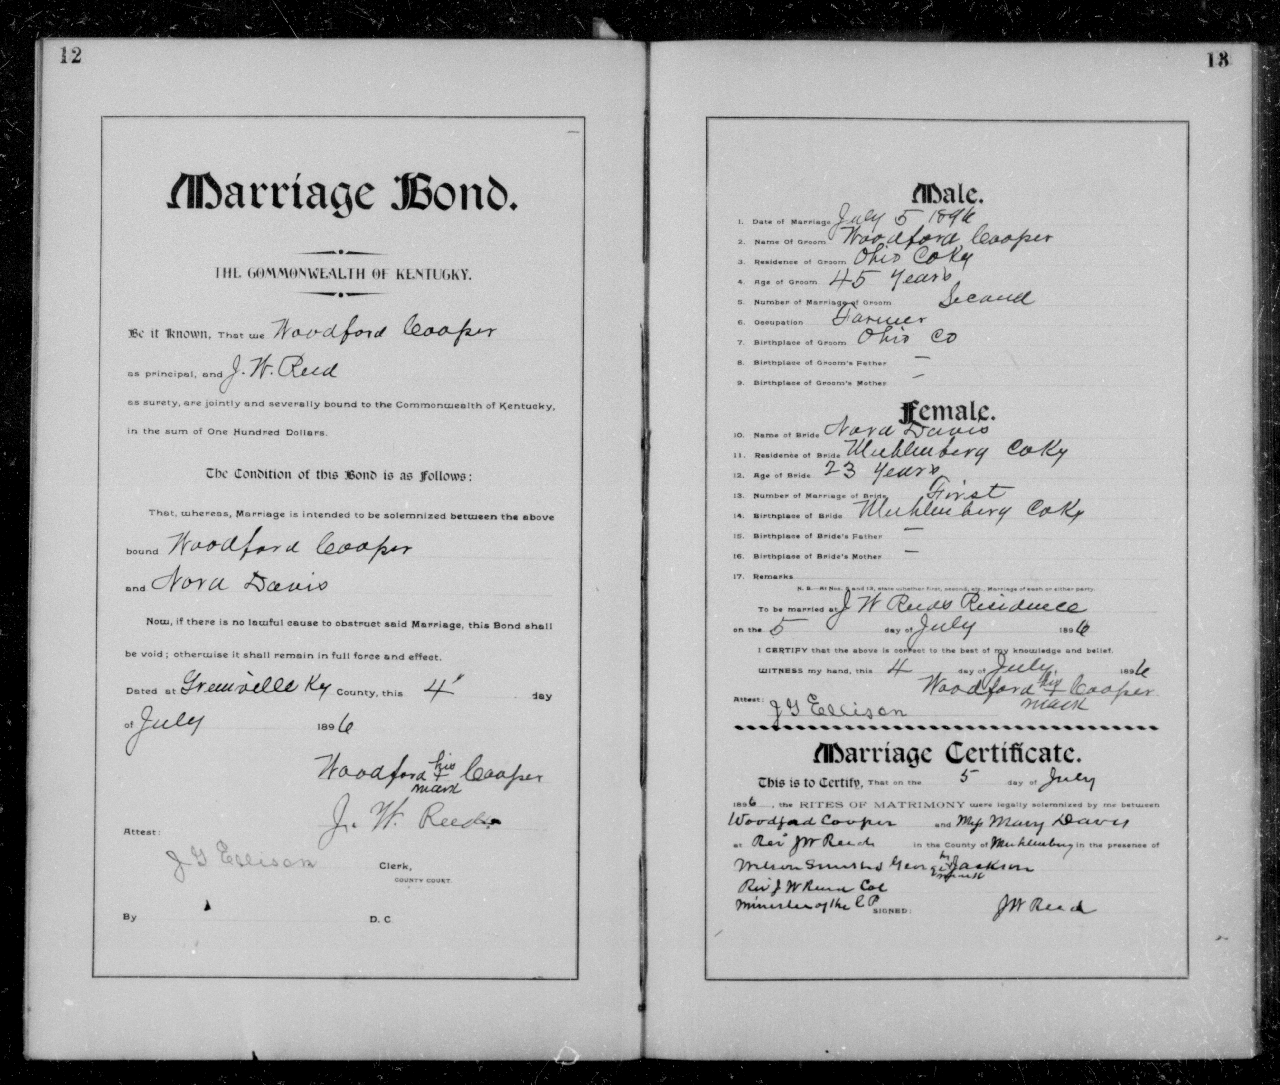 12
Marriage Bond.
THE COMMONWEALTH OF KENTUCKY.
Be it Known, That we Woodford Cooper
as principal, and J. W. Reed
as surety, are jointly and severally bound to the Commonwealth of Kentucky,
in the sum of One Hundred Dollars.
The Condition of this Bond is as Follows:
That, whereas, Marriage is intended to be solemnized between the above
bound Woodford Cooper
and Nora Davis
Now, if there is no lawful cause to obstruct said Marriage, this Bond shall
be void; otherwise it shall remain in full force and effect.
Dated at Greenville Ky County, this 4" day
of July 1896
Woodford his + mark Cooper
J. W. Reed
Attest:
J G Ellison Clerk,
COUNTY COURT.
By D. C
13
Male.
1. Date of Marriage July 5 1896
2. Name Of Groom Woodford Cooper
3. Residence of Groom Ohio Co Ky
4. Age of Groom 45 Years
5. Number of Marriage of Groom Second
6. Occupation Farmer
7. Birthplace of Groom Ohio Co
8. Birthplace of Groom's Father —
9. Birthplace of Groom's Mother —
Female.
10. Name of Bride Nora Davis
11. Residence of Bride Muhlenberg Co Ky
12. Age of Bride 23 Years
13. Number of Marriage of Bride First
14. Birthplace of Bride Muhlenberg Co Ky
15. Birthplace of Bride's Father —
16. Birthplace of Bride's Mother —
17. Remarks
N. B.—At Nos. 5 and 13, state whether first, second, etc., Marriage of each or either party.
To be married at J W Reeds Residence
on the 5 day of July 1896
I CERTIFY that the above is correct to the best of my knowledge and belief.
WITNESS my hand, this 4 day of July, 1896
Woodford his + mark Cooper
Attest: J G Ellison
Marriage Certificate.
This is to Certify, That on the 5 day of July
1896, the RITES OF MATRIMONY were legally solemnized by me between
Woodford Cooper and Miss Mary Davis
at Rev J W Reeds in the County of Muhlenburg in the presence of
Wilson Smith & George his + mark Jackson
Rev J W Reed Col
Minister of the C P SIGNED: J W Reed